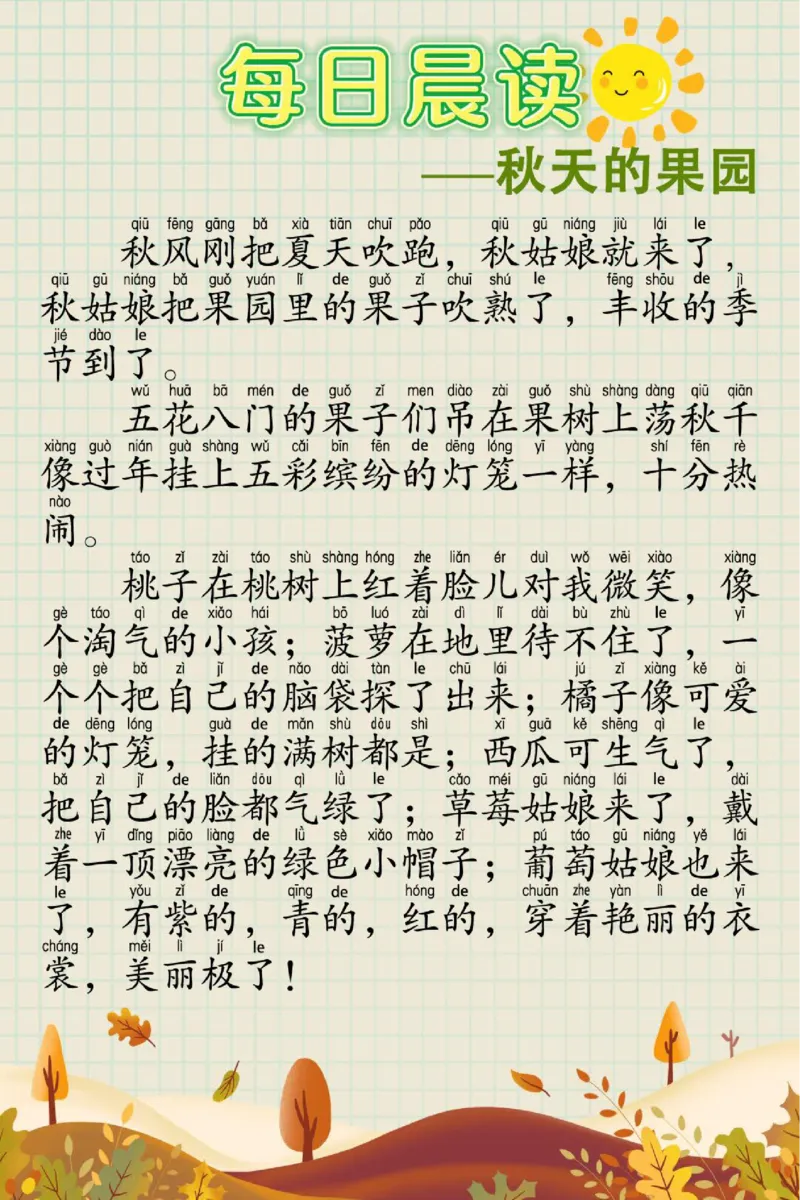 每日晨读
——秋天的果园
qiū fēng gāng bǎ xià tiān chuī pǎo qiū gū niáng jiù lái le
秋风刚把夏天吹跑，秋姑娘就来了，
qiū gū niáng bǎ guǒ yuán lǐ de guǒ zǐ chuī shú le fēng shōu de jì
秋姑娘把果园里的果子吹熟了，丰收的季
jié dào le
节到了。
wǔ huā bā mén de guǒ zǐ men diào zài guǒ shù shàng dàng qiū qiān
五花八门的果子们吊在果树上荡秋千
xiàng guò nián guà shàng wǔ cǎi bīn fēn de dēng lóng yī yàng shí fēn rè
像过年挂上五彩缤纷的灯笼一样，十分热
nào
闹。
táo zǐ zài táo shù shàng hóng zhe liǎn ér duì wǒ wēi xiào xiàng
桃子在桃树上红着脸儿对我微笑，像
gè táo qì de xiǎo hái bō luó zài dì lǐ dài bù zhù le yī
个淘气的小孩；菠萝在地里待不住了，一
gè gè bǎ zì jǐ de nǎo dài tàn le chū lái jú zǐ xiàng kě ài
个个把自己的脑袋探了出来；橘子像可爱
de dēng lóng guà de mǎn shù dōu shì xī guā kě shēng qì le
的灯笼，挂的满树都是；西瓜可生气了，
bǎ zì jǐ de liǎn dōu qì lǜ le cǎo méi gū niáng lái le dài
把自己的脸都气绿了；草莓姑娘来了，戴
zhe yī dǐng piāo liàng de lǜ sè xiǎo mào zǐ pú táo gū niáng yě lái
着一顶漂亮的绿色小帽子；葡萄姑娘也来
le yǒu zǐ de qīng de hóng de chuān zhe yàn lì de yī
了，有紫的，青的，红的，穿着艳丽的衣
cháng měi lì jí le
裳，美丽极了！